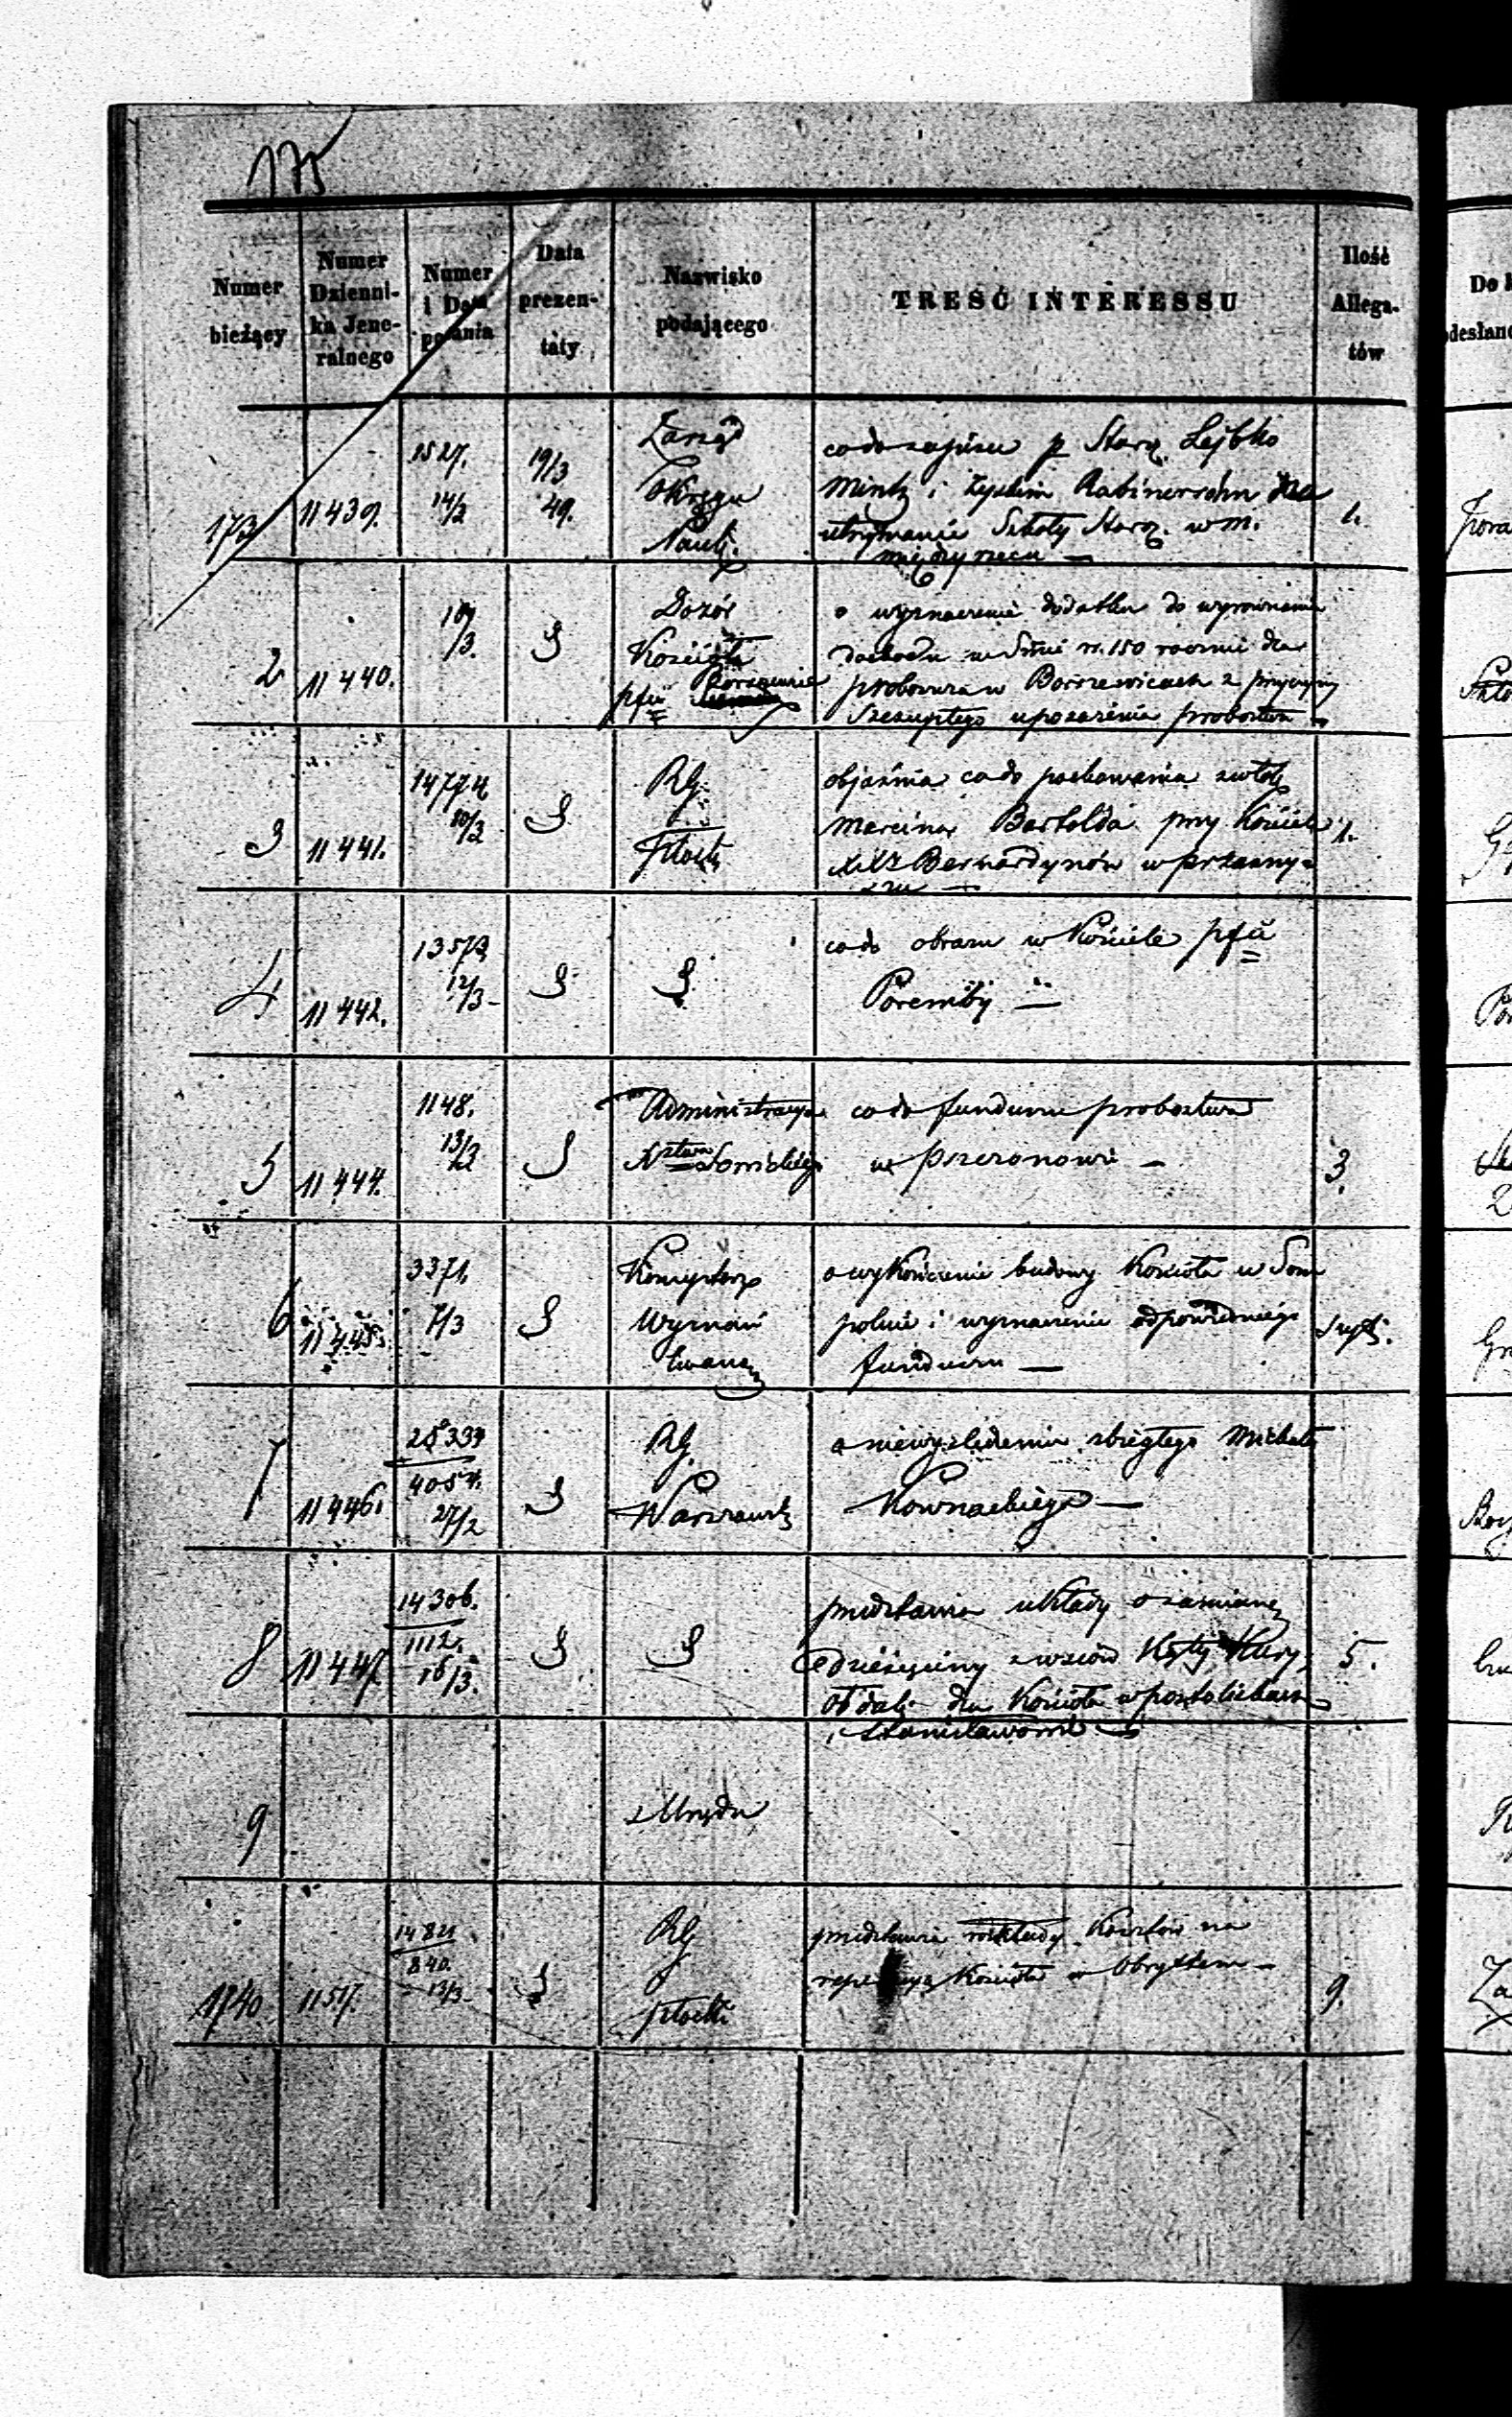 175
Numer bieżący
Numer Dzienni- ka Jene- ralnego
Numer i Data podania
Data prezen- taty
Nazwisko podającego
TREŚĆ INTERESSU
Ilość Allega- tów
1731
11439.
1527.
14/3
19/3
49.
Zarząd
Okręgu
Nauk.
co do zapisu p Staroz. Lejbko
Mintz i Zyskim Rabinersohn na
utrzymanie Szkoły Staroz. w m.
Międzyrzecu —
1.
2
11440.
/3.
S
Dozór
Kościoła
pfii
o wyznaczenie dodatku do wyrównania
dochodu w Smie rs. 150 rocznie dla
proboszcza w Borszewicach z przyczyny
szczupłego uposażenia probostwa —
3
11441.
10/3
S
RG
Płocki
objaśnia co do pochowania zwłok
Marcina Bartolda przy Kościele
XXży Bernardynów w Przasny-
szu —
1.
4
11442.
13573
12/3
S
S
co do obrazu w Kościele pfii
Poremby —
5
11444.
1148.
13/3
S
Administracya
Xstwa Łowickiego
co do funduszu probostwa
w Pszczonowie —
3.
6
11445.
3371.
7/3
S
Konsystorz
Wyznań
Ewang
o wykończenie budowy Kościoła w Som
polnie i wyznaczenie odpowiedniego
funduszu —
7
11446.
28333
4054.
27/2
S
RG.
Warszawski
o niewyśledzeniu zbiegłego Michała
Kownackiego —
8
11447.
14306.
1112.
16/3.
S
S
przedstawia układy o zamianę
dziesięciny z wsiów Kąty
dla Kościoła w
Stanisławowie —
5.
9
z Urzędu
1740.
11517.
14821
840.
13/3
S
RG
Płocki
przedstawia rozkłady Kosztów na
Kościoła w Obrytem —
9.